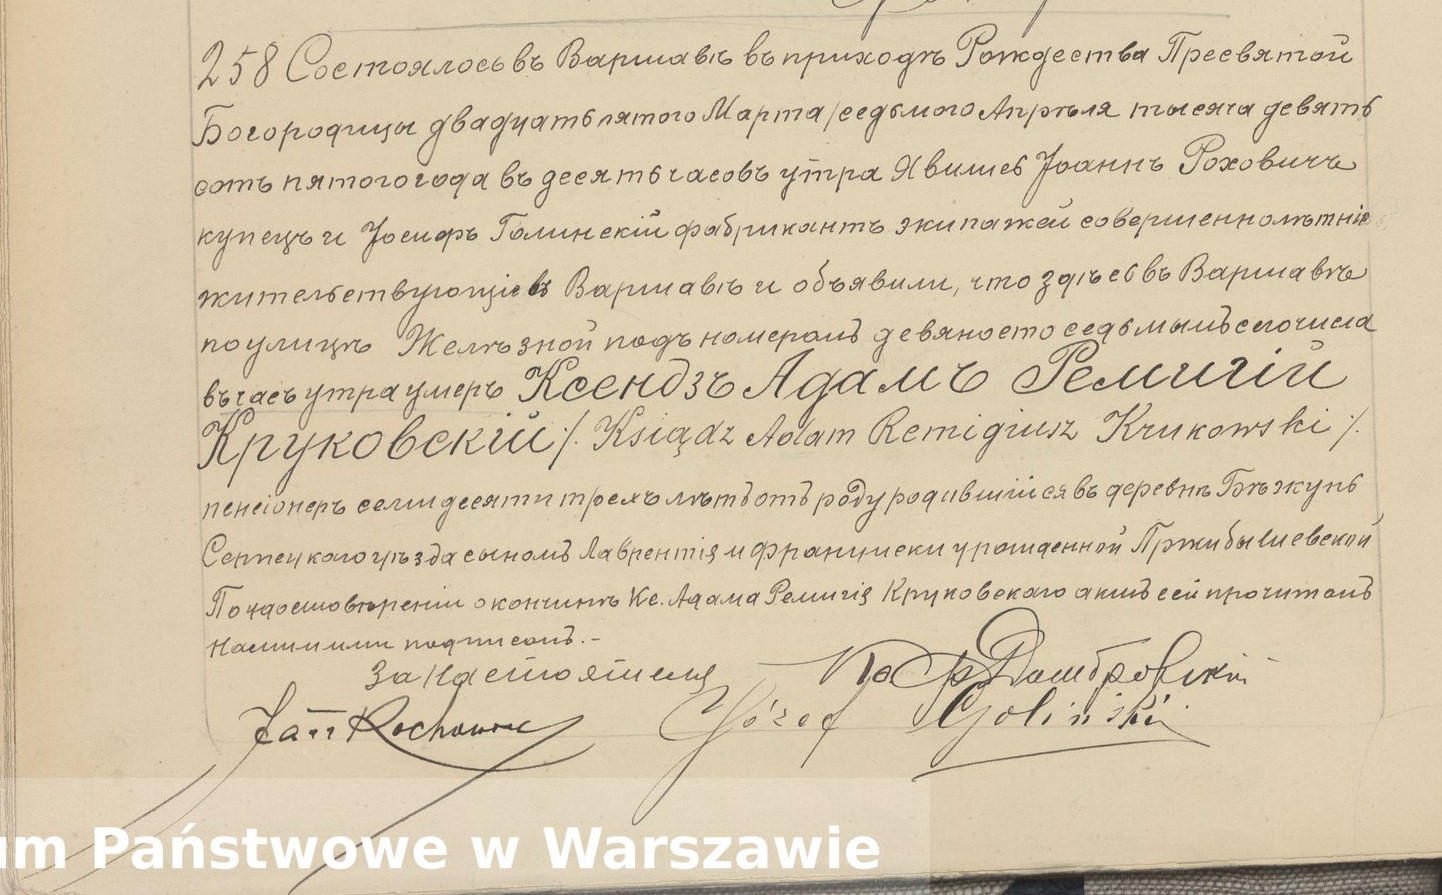 258 Состоялось въ Варшавѣ въ приходѣ Рождества Пресвятой
Богородицы двадцать пятого Марта /седьмого Апрѣля тысяча девять
сотъ пятого года въ десять часовъ утра Явились Іоаннъ Роховичъ
купецъ и Іосифъ Голинскій фабрикантъ экипажей совершеннолѣтніе
жительствующіе въ Варшавѣ и объявили, что здѣсь въ Варшавѣ
по улицѣ Желѣзной подъ номеромъ девяносто седьмымъ сего числа
въ часъ утра умеръ Ксендзъ Адамъ Ремигій
Круковскій /. Ksiądz Adam Remigiusz Krukowski /.
пенсіонеръ семидесяти трехъ лѣтъ отъ роду родившійся въ деревнѣ Бѣжунь
Серпецкого уѣзда сыномъ Лаврентія и Франциски урожденной Пржибышевской
По удостовѣреніи о кончинѣ Кс. Адама Ремигія Круковскаго актъ сей прочитанъ
нами и подписанъ.-
За Настоятеля Кс Ф Домбровскій
Jan Rochowicz Józef Goliński
um Państwowe w Warszawie